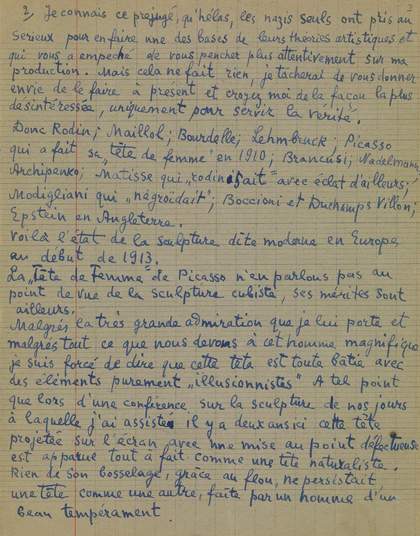 2
3 Je connais ce préjugé, qu'hélas, les nazis seuls ont pris au
sérieux pour en faire une des bases de leurs théories artistiques et
qui vous a empeché de vous pencher plus attentivement sur ma
production. Mais cela ne fait rien, je tâcherai de vous donner
envie de le faire à present et croyez moi de la façon la plus
desintéressée, uniquement pour servir la vérité.
Donc Rodin; Maillol; Bourdelle; Lehmbruck; Picasso
qui a fait sa „tête de femme" en 1910; Brancusi; Nadelmann;
Archipenko; Matisse qui „rodinisait" avec éclat d'ailleurs;
Modigliani qui „négroïdait"; Boccioni et Duchamps Villon;
Epstein en Angleterre.
Voilà l'état de la sculpture dite moderne en Europe
au début de 1913.
La „Tête de Femme" de Picasso n'en parlons pas au
point de vue de la sculpture cubiste, ses mérites sont
ailleurs.
Malgrés la très grande admiration que je lui porte et
malgres tout ce que nous devons à cet homme magnifique
je suis forcé de dire que cette tête est toute bâtie avec
des éléments purement „illusionnistes" A tel point
que lors d'une conférence sur la sculpture de nos jours
à laquelle j'ai assisté il y a deux ans ici cette tête
projetée sur l'écran avec une mise au point défectueuse
est apparue tout à fait comme une tête naturaliste.
Rien de son bosselage, grâce au flou, ne persistait
une tête comme une autre, faite par un homme d'un
beau tempérament.